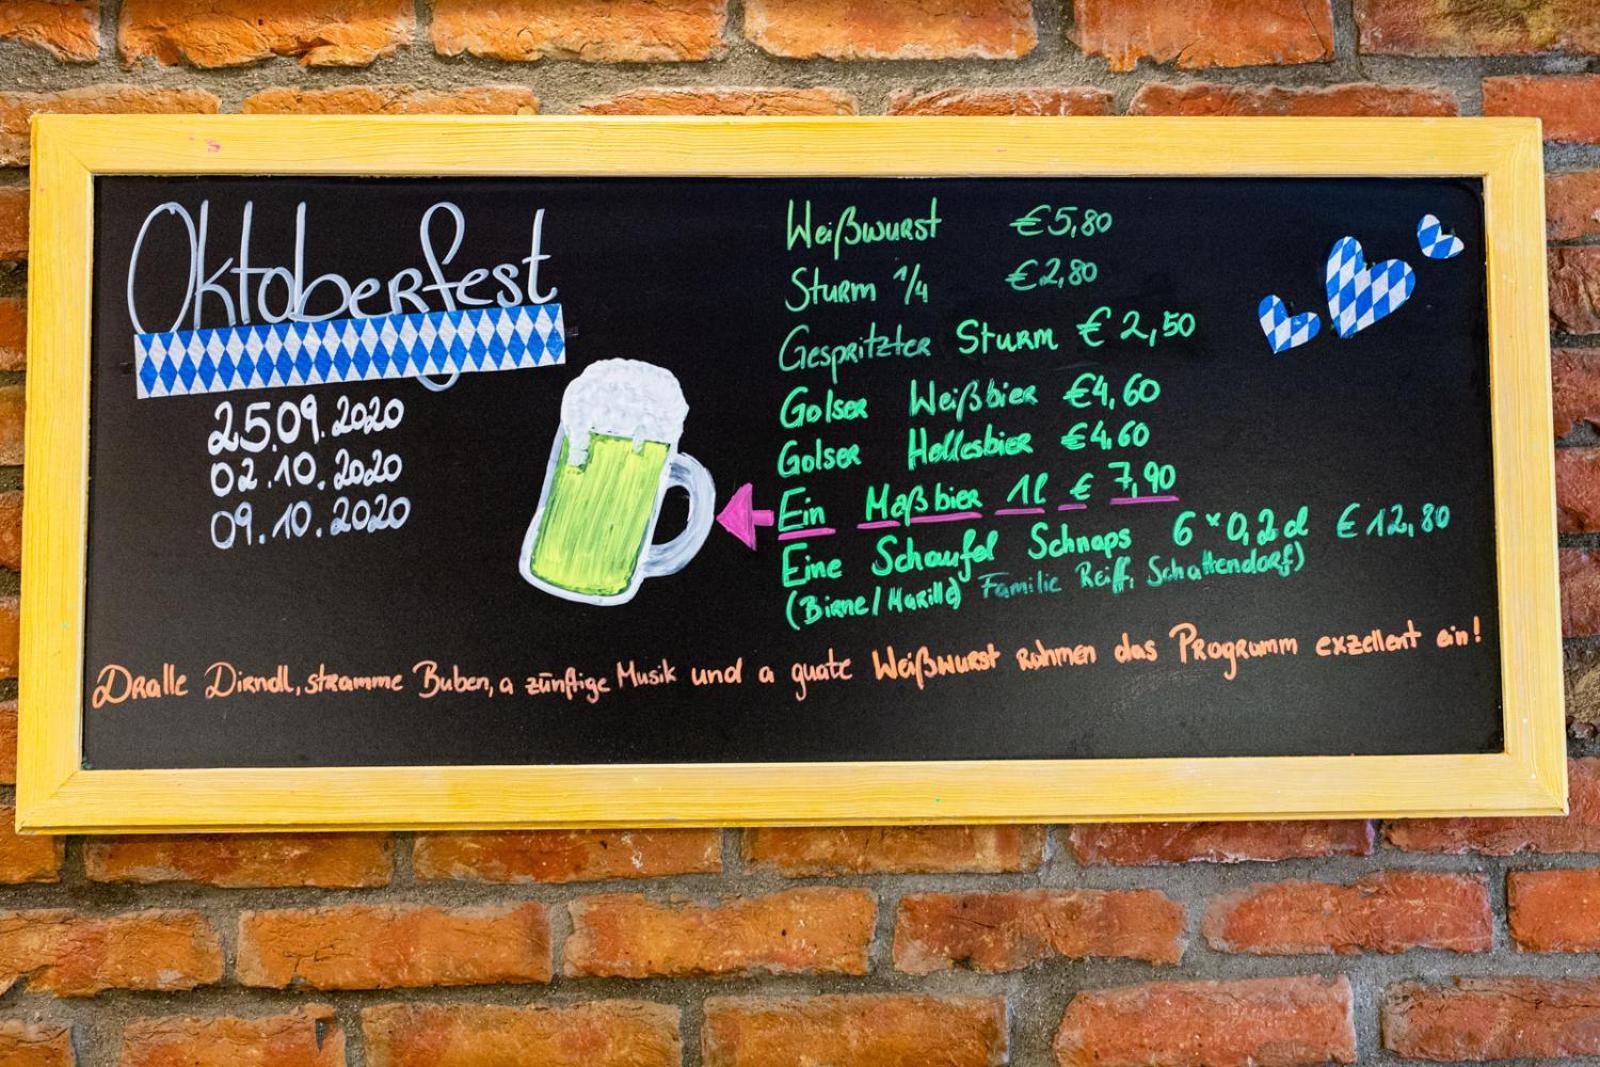 Oktoberfest
25.09.2020
02.10.2020
09.10.2020
Weißwurst €5,80
Sturm 1/4 €2,80
Gespritzter Sturm € 2,50
Golser Weißbier €4,60
Golser Hellesbier €4,60
Ein Maßbier 1l € 7,90
Eine Schaufel Schnaps 6 x 0,2cl € 12,80
(Birne/Marille) Familie Reiff, Schattendorf)
Dralle Dirndl, stramme Buben, a zünftige Musik und a guate Weißwurst rahmen das Programm exzellent ein!